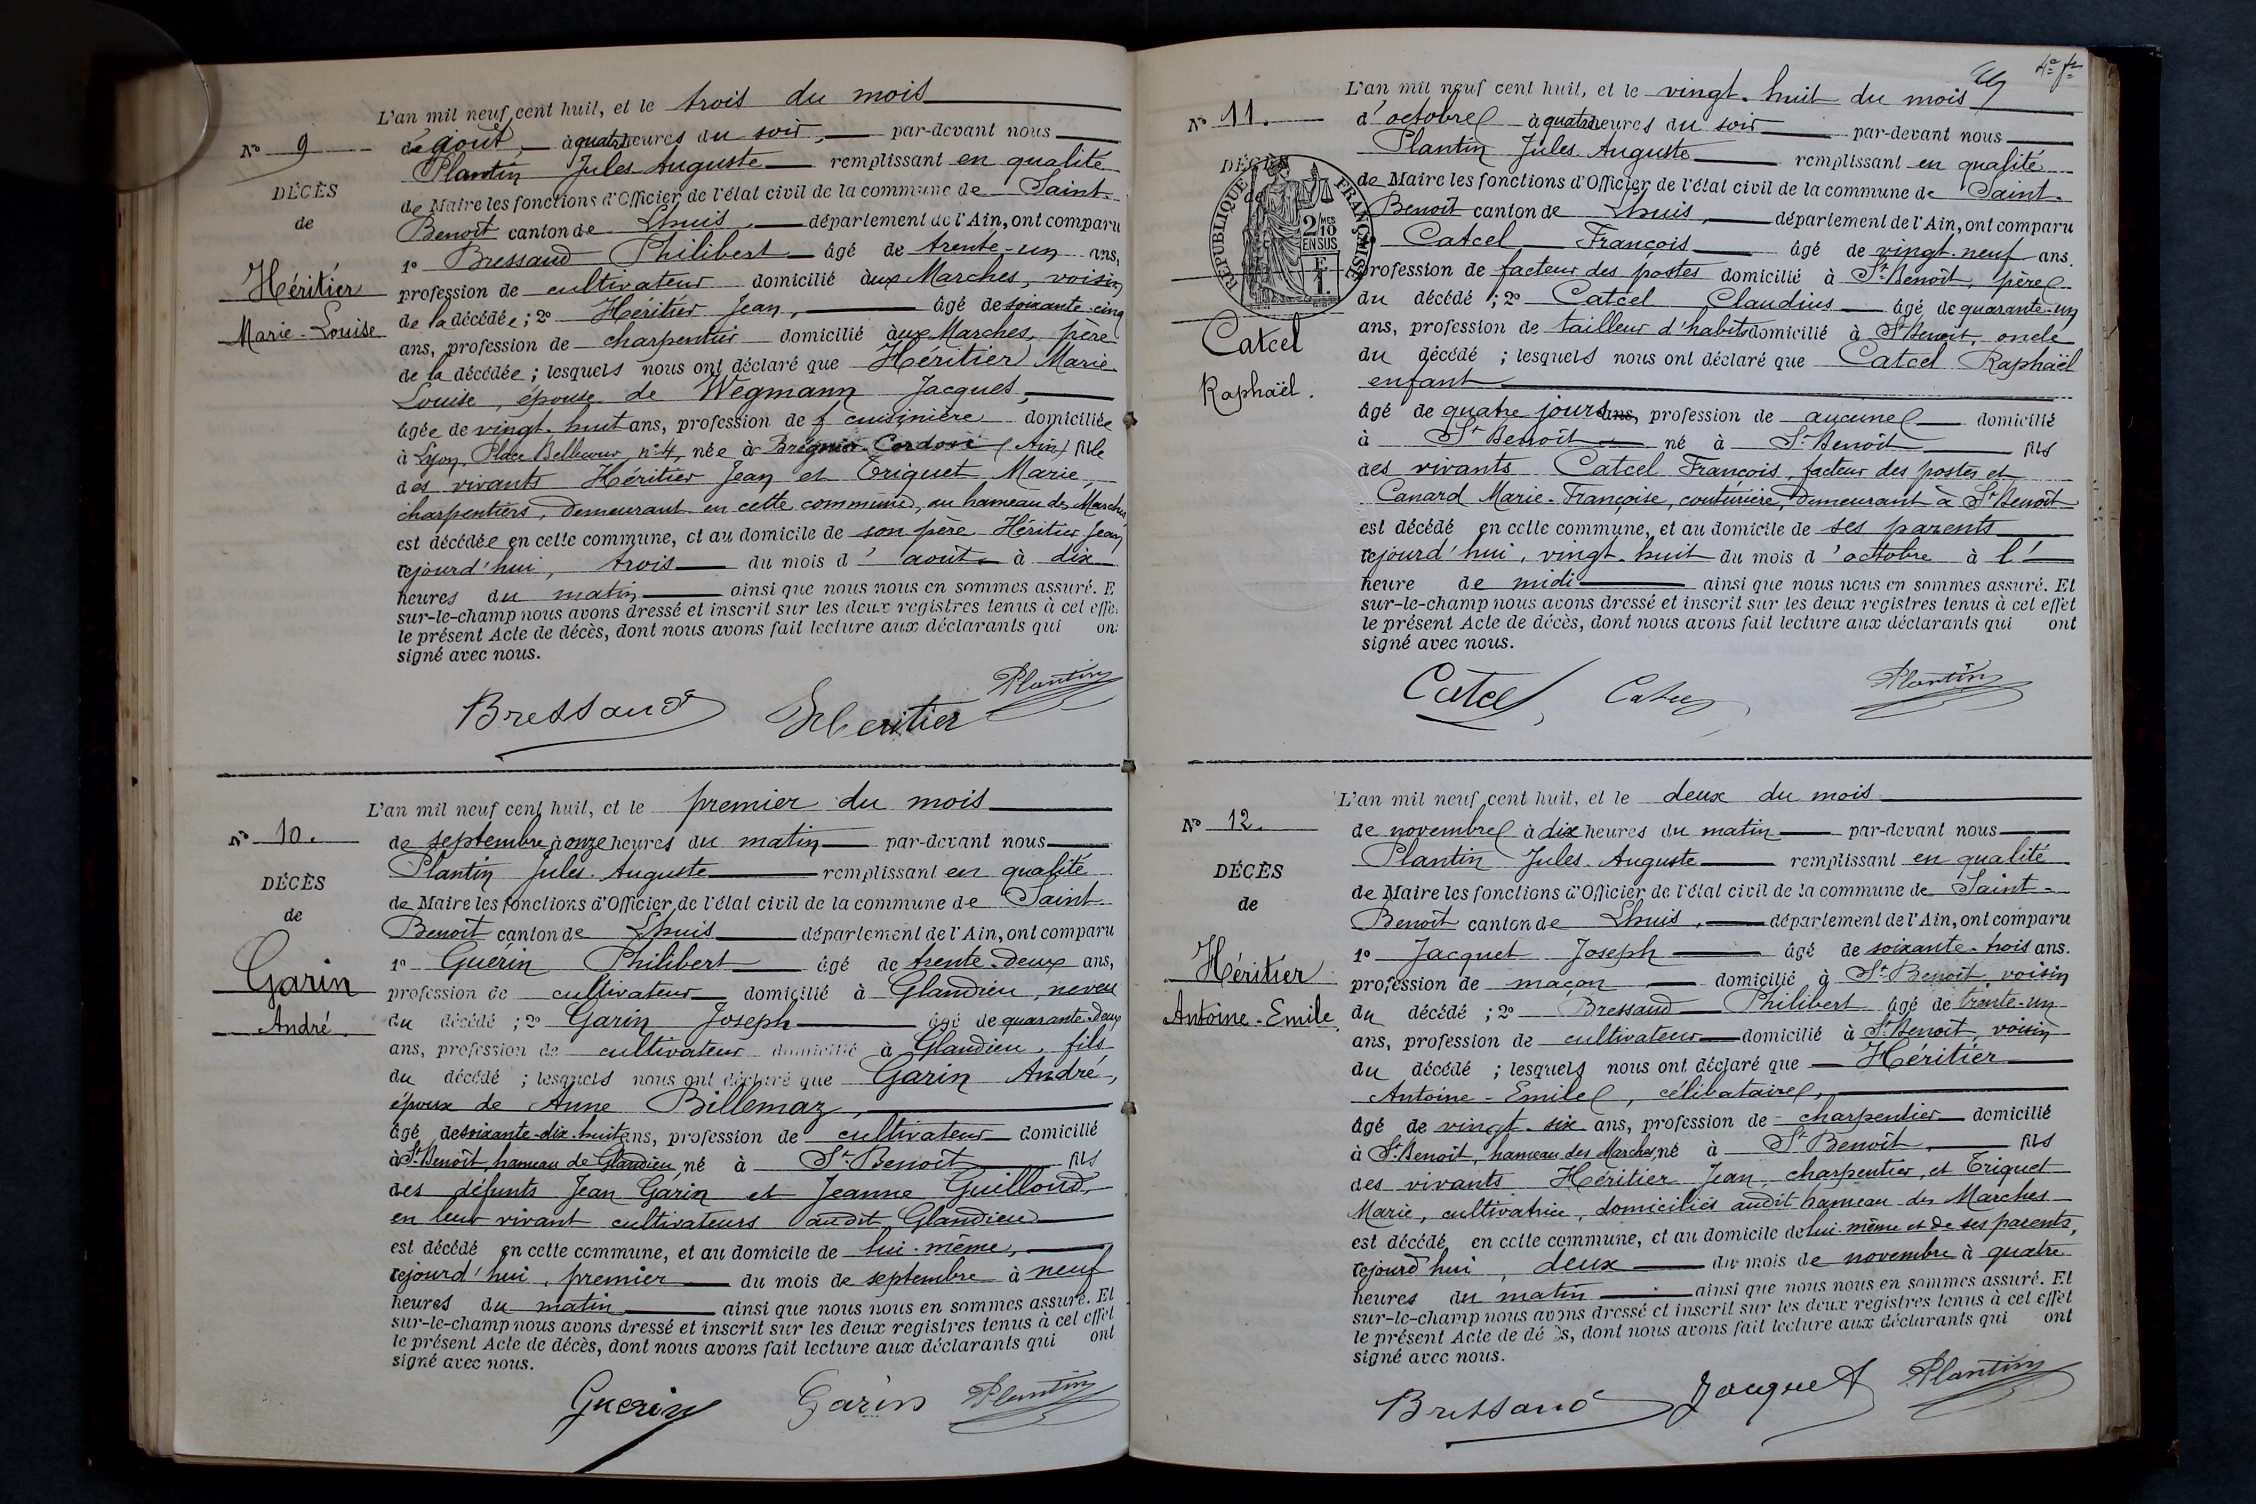 L'an mil neuf cent huit, et le trois du mois
N° 9
d'août, à quatre heures du soir, par-devant nous
Plantin Jules Auguste remplissant en qualité
DÉCÈS
de Maire les fonctions d'Officier de l'état civil de la commune de Saint-
de
Benoît canton de Lhuis, département de l'Ain, ont comparu
1° Bressaud Philibert âgé de trente-un ans,
Héritier
profession de cultivateur domicilié aux Marches, voisin
Marie-Louise
de la décédée ; 2° Héritier Jean, âgé de soixante-cinq
ans, profession de charpentier domicilié aux Marches, père
de la décédée ; lesquels nous ont déclaré que Héritier Marie
Louise, épouse de Wegmann Jacques,
âgée de vingt-huit ans, profession de cuisinière domiciliée
à Lyon, Place Bellecour, n° 4, née à Brégnier-Cordon (Ain) fille
des vivants Héritier Jean et Triquet Marie,
charpentiers, demeurant en cette commune, au hameau des Marches,
est décédée en cette commune, et au domicile de son père Héritier Jean
cejourd'hui, trois du mois d'août à dix
heures du matin ainsi que nous nous en sommes assuré. E
sur-le-champ nous avons dressé et inscrit sur les deux registres tenus à cet effe
le présent Acte de décès, dont nous avons fait lecture aux déclarants qui on
signé avec nous.
Bressaud Héritier Plantin
L'an mil neuf cent huit, et le premier du mois
N° 10.
de septembre à onze heures du matin par-devant nous
Plantin Jules Auguste remplissant en qualité
DÉCÈS
de Maire les fonctions d'Officier de l'état civil de la commune de Saint
de
Benoît canton de Lhuis département de l'Ain, ont comparu
1° Guérin Philibert âgé de trente-deux ans,
Garin
profession de cultivateur domicilié à Glandieu, neveu
André.
du décédé ; 2° Garin Joseph âgé de quarante-deux
ans, profession de cultivateur domicilié à Glandieu, fils
du décédé ; lesquels nous ont déclaré que Garin André,
époux de Anne Billemaz,
âgé de soixante-dix-huit ans, profession de cultivateur domicilié
à St-Benoît, hameau de Glandieu, né à St-Benoît fils
des défunts Jean Garin et Jeanne Guilloud,
en leur vivant cultivateurs audit Glandieu
est décédé en cette commune, et au domicile de lui-même,
cejourd'hui, premier du mois de septembre à neuf
heures du matin ainsi que nous nous en sommes assuré. Et
sur-le-champ nous avons dressé et inscrit sur les deux registres tenus à cet effet
le présent Acte de décès, dont nous avons fait lecture aux déclarants qui ont
signé avec nous.
Guerin Garin Plantin
L'an mil neuf cent huit, et le vingt-huit du mois
N° 11.
d'octobre à quatre heures du soir par-devant nous
Plantin Jules Auguste remplissant en qualité
DÉCÈS
de Maire les fonctions d'Officier de l'état civil de la commune de Saint-
RÉPUBLIQUE FRANÇAISE
2/10 MES
EN SUS
F
1.
Benoît canton de Lhuis, département de l'Ain, ont comparu
Catcel François âgé de vingt-neuf ans.
profession de facteur des postes domicilié à St-Benoît, père
du décédé ; 2° Catcel Claudius âgé de quarante-un
Catcel
ans, profession de tailleur d'habits domicilié à St-Benoît, oncle
du décédé ; lesquels nous ont déclaré que Catcel Raphaël
Raphaël.
enfant
âgé de quatre jours ans, profession de aucune domicilié
à St-Benoît né à St-Benoît fils
des vivants Catcel François, facteur des postes et
Canard Marie-Françoise, couturière, demeurant à St-Benoît
est décédé en cette commune, et au domicile de ses parents
cejourd'hui, vingt-huit du mois d'octobre à l'
heure de midi ainsi que nous nous en sommes assuré. Et
sur-le-champ nous avons dressé et inscrit sur les deux registres tenus à cet effet
le présent Acte de décès, dont nous avons fait lecture aux déclarants qui ont
signé avec nous.
Catcel Catcel Plantin
L'an mil neuf cent huit, et le deux du mois
N° 12.
de novembre à dix heures du matin par-devant nous
Plantin Jules Auguste remplissant en qualité
DÉCÈS
de Maire les fonctions d'Officier de l'état civil de la commune de Saint-
de
Benoît canton de Lhuis, département de l'Ain, ont comparu
1° Jacquet Joseph âgé de soixante-trois ans.
Héritier
profession de maçon domicilié à St-Benoît, voisin
Antoine-Emile
du décédé ; 2° Bressaud Philibert âgé de trente-un
ans, profession de cultivateur domicilié à St-Benoît, voisin
du décédé ; lesquels nous ont déclaré que Héritier
Antoine-Emile, célibataire,
âgé de vingt-six ans, profession de charpentier domicilié
à St-Benoît, hameau des Marches, né à St-Benoît fils
des vivants Héritier Jean, charpentier, et Triquet
Marie, cultivatrice, domiciliés audit hameau des Marches
est décédé en cette commune, et au domicile de lui-même et de ses parents,
cejourd'hui, deux du mois de novembre à quatre
heures du matin ainsi que nous nous en sommes assuré. Et
sur-le-champ nous avons dressé et inscrit sur les deux registres tenus à cet effet
le présent Acte de décès, dont nous avons fait lecture aux déclarants qui ont
signé avec nous.
Bressaud Jacquet Plantin